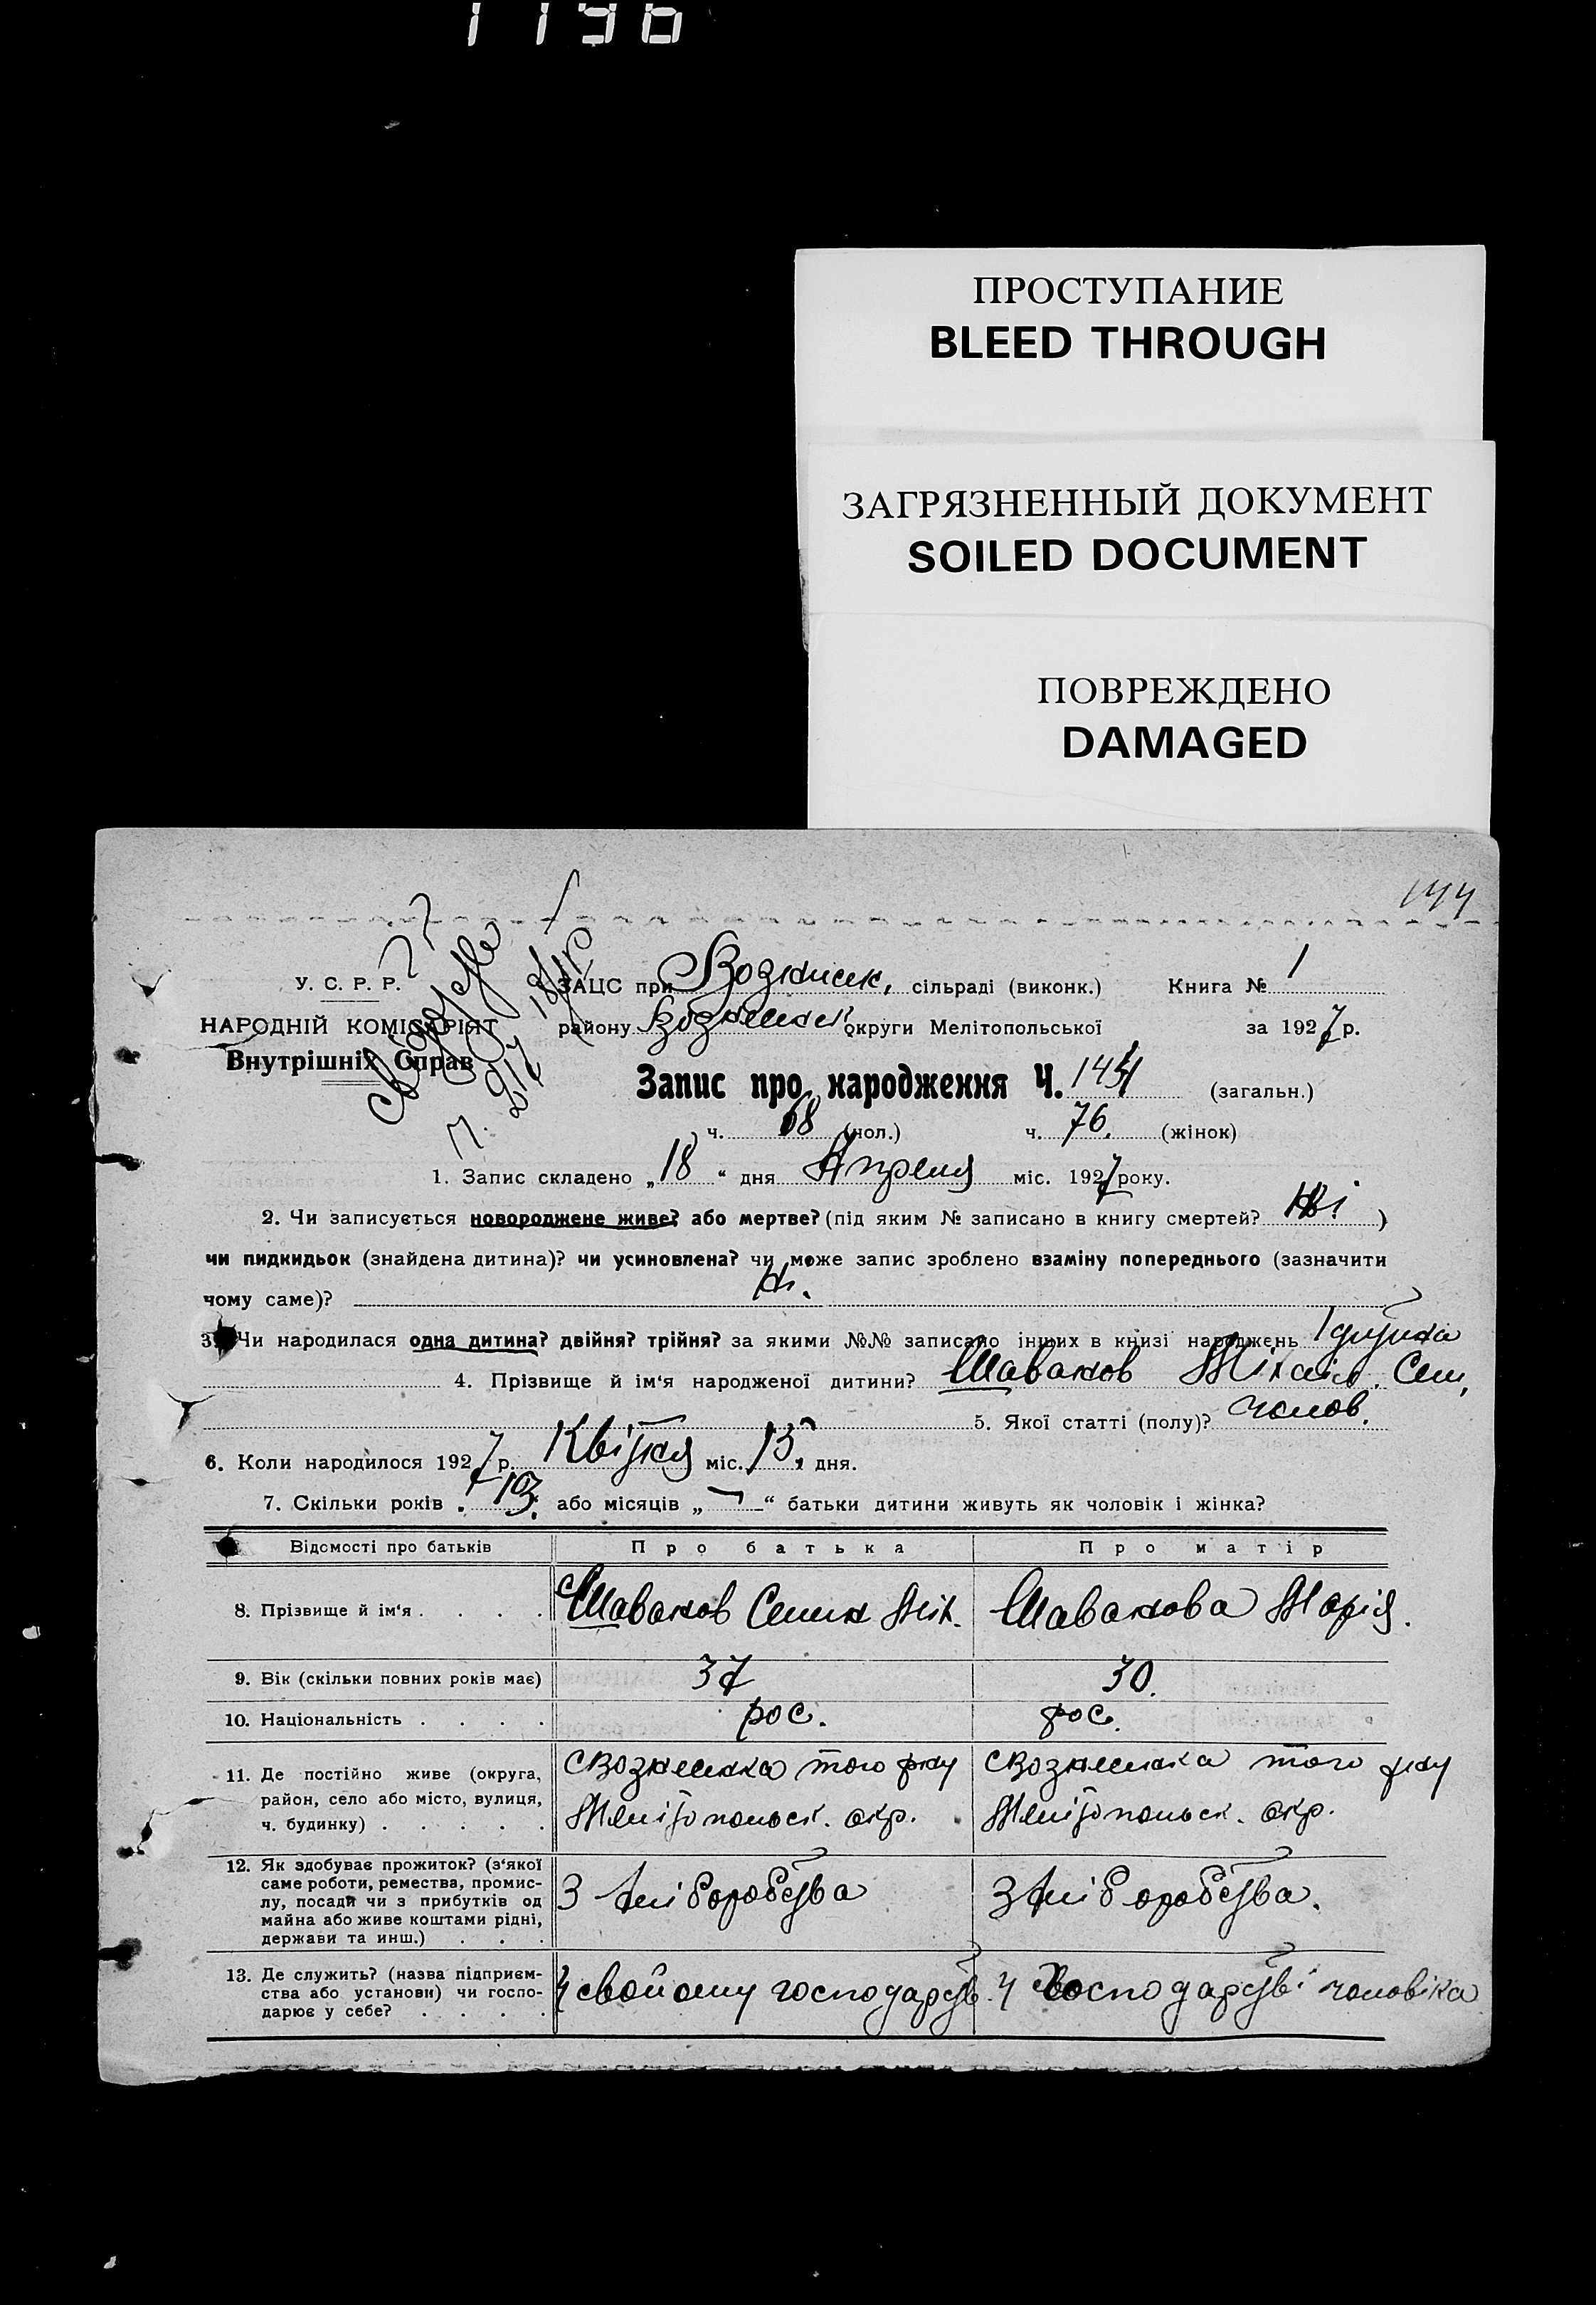 1196
ПРОСТУПАНИЕ
BLEED THROUGH
ЗАГРЯЗНЕННЫЙ ДОКУМЕНТ
SOILED DOCUMENT
ПОВРЕЖДЕНО
DAMAGED
144
У. С. Р. Р.
НАРОДНІЙ КОМІСАРІЯТ
Внутрішніх Справ
ЗАЦС при Вознисек, сільраді (виконк.) Книга № 1
району округи Мелітопольської за 1927 р.
Запис про народження Ч. 144 (загальн.)
ч. 68 (чол.) ч. 76. (жінок)
1. Запис складено „18“ дня Апреля міс. 1927 року.
2. Чи записується новороджене живе? або мертве? (під яким № записано в книгу смертей? Ні)
чи пидкидьок (знайдена дитина)? чи усиновлена? чи може запис зроблено взаміну попереднього (зазначити
чому саме)? Ні.
3. Чи народилася одна дитина? двійня? трійня? за якими №№ записано інших в книзі народжень 1 дитина
4. Прізвище й ім‘я народженої дитини? Шаванов Міхаіл. Сем,
5. Якої статті (полу)? чолов.
6. Коли народилося 1927 р. Квітня міс. 13, дня.
7. Скільки років 13. або місяців „—“ батьки дитини живуть як чоловік і жінка?
Відомості про батьків Про батька Про матір
8. Прізвище й ім‘я . . . . Шаванов Семен Міх. Шаванова Марія.
9. Вік (скільки повних років має) 37 30.
10. Національність . . . . рос. рос.
11. Де постійно живе (округа, район, село або місто, вулиця, ч. будинку) . . . . .
с Вознесенка того р-ну с Вознесенка того р-ну
Мелітопольск. окр. Мелітопольск. окр.
12. Як здобуває прожиток? (з‘якої
саме роботи, ремества, промис-
лу, посади чи з прибутків од
майна або живе коштами рідні,
держави та инш.) . . .
З хліборобства З хліборобства.
13. Де служить? (назва підприєм-
ства або установи) чи госпо-
дарює у себе? . . . .
У свойому господарств. У господарстві чоловіка